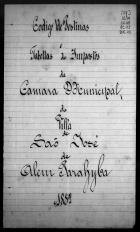 Codigo de Posturas
e
Tabellas de Impostos
da
Camara Municipal,
da
Villa
de
São José
de
Além Parahyba
1882